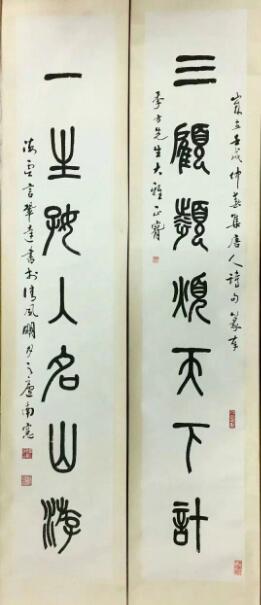 歲在壬戌仲春集唐人詩句篆奉
三顧頻煩天下計
季方先生大雅正
一生好入名山游
海雲達書於清風明月之廬南窗